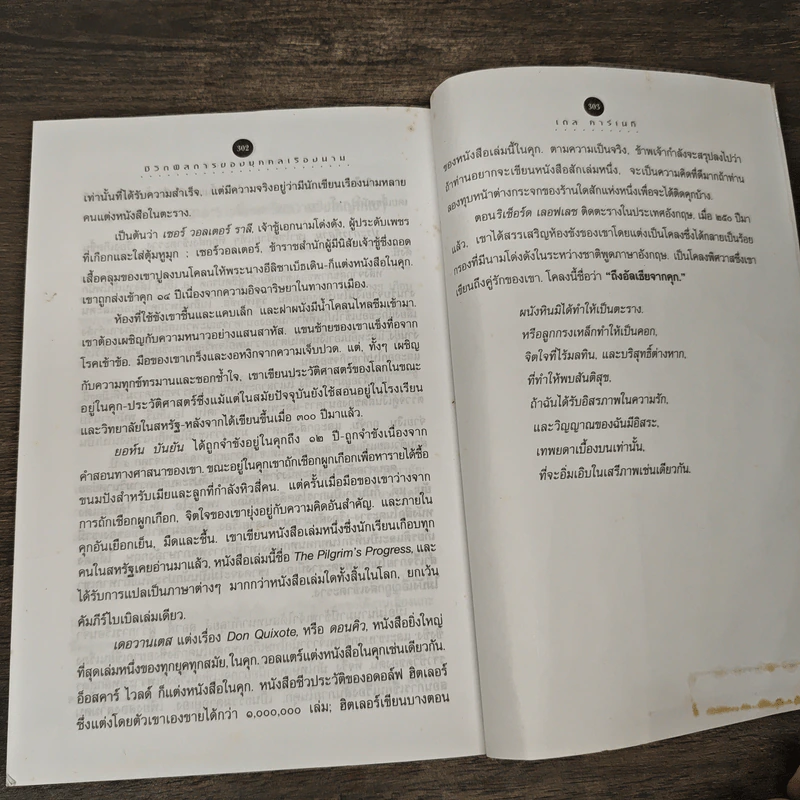 302
ชีวิตพิสดารของบุคคลเรืองนาม
เท่านั้นที่ได้รับความสำเร็จ. แต่มีความจริงอยู่ว่ามีนักเขียนเรืองนามหลาย
คนแต่งหนังสือในตะราง.
เป็นต้นว่า เซอร์ วอลเตอร์ ราลี, เจ้าชู้เอกนามโด่งดัง, ผู้ประดับเพชร
ที่เกือกและใส่ตุ้มหูมุก : เซอร์วอลเตอร์, ข้าราชสำนักผู้มีนิสัยเจ้าชู้ซึ่งถอด
เสื้อคลุมของเขาปูลงบนโคลนให้พระนางอีลิซาเบ็ธเดิน-ก็แต่งหนังสือในคุก.
เขาถูกส่งเข้าคุก ๑๔ ปีเนื่องจากความอิจฉาริษยาในทางการเมือง.
ห้องที่ใช้ขังเขาชื้นและแคบเล็ก และฝาผนังมีน้ำโคลนไหลซึมเข้ามา.
เขาต้องเผชิญกับความหนาวอย่างแสนสาหัส. แขนซ้ายของเขาแข็งทื่อจาก
โรคเข้าข้อ. มือของเขาเกร็งและงอหงิกจากความเจ็บปวด. แต่, ทั้งๆ เผชิญ
กับความทุกข์ทรมานและชอกช้ำใจ, เขาเขียนประวัติศาสตร์ของโลกในขณะ
อยู่ในคุก-ประวัติศาสตร์ซึ่งแม้แต่ในสมัยปัจจุบันยังใช้สอนอยู่ในโรงเรียน
และวิทยาลัยในสหรัฐ-หลังจากได้เขียนขึ้นเมื่อ ๓๐๐ ปีมาแล้ว.
ยอห์น บันยัน ได้ถูกจำขังอยู่ในคุกถึง ๑๒ ปี-ถูกจำขังเนื่องจาก
คำสอนทางศาสนาของเขา. ขณะอยู่ในคุกเขาถักเชือกผูกเกือกเพื่อหารายได้ซื้อ
ขนมปังสำหรับเมียและลูกที่กำลังหิวสี่คน. แต่ครั้นเมื่อมือของเขาว่างจาก
การถักเชือกผูกเกือก, จิตใจของเขายุ่งอยู่กับความคิดอันสำคัญ. และภายใน
คุกอันเยือกเย็น, มืดและชื้น. เขาเขียนหนังสือเล่มหนึ่งซึ่งนักเรียนเกือบทุก
คนในสหรัฐเคยอ่านมาแล้ว, หนังสือเล่มนี้ชื่อ The Pilgrim's Progress, และ
ได้รับการแปลเป็นภาษาต่างๆ มากกว่าหนังสือเล่มใดทั้งสิ้นในโลก, ยกเว้น
คัมภีร์ไบเบิลเล่มเดียว.
เดอวานเตส แต่งเรื่อง Don Quixote, หรือ ดอนคิว, หนังสือยิ่งใหญ่
ที่สุดเล่มหนึ่งของทุกยุคทุกสมัย, ในคุก. วอลแตร์แต่งหนังสือในคุกเช่นเดียวกัน.
อ็อสคาร์ ไวลด์ ก็แต่งหนังสือในคุก. หนังสือชีวประวัติของอดอล์ฟ ฮิตเลอร์
ซึ่งแต่งโดยตัวเขาเองขายได้กว่า ๑,๐๐๐,๐๐๐ เล่ม; ฮิตเลอร์เขียนบางตอน
303
เดล คาร์เนกี
ของหนังสือเล่มนี้ในคุก. ตามความเป็นจริง, ข้าพเจ้ากำลังจะสรุปลงไปว่า
ถ้าท่านอยากจะเขียนหนังสือสักเล่มหนึ่ง, จะเป็นความคิดที่ดีมากถ้าท่าน
ลองทุบหน้าต่างกระจกของร้านใดสักแห่งหนึ่งเพื่อจะได้ติดคุกบ้าง.
ตอนริเชอร์ด เลอฟเลซ ติดตะรางในประเทศอังกฤษ, เมื่อ ๒๕๐ ปีมา
แล้ว, เขาได้สรรเสริญห้องขังของเขาโดยแต่งเป็นโคลงซึ่งได้กลายเป็นร้อย
กรองที่มีนามโด่งดังในระหว่างชาติพูดภาษาอังกฤษ. เป็นโคลงพิศวาสซึ่งเขา
เขียนถึงคู่รักของเขา. โคลงนี้ชื่อว่า “ถึงอัลเธียจากคุก.”
ผนังหินมิได้ทำให้เป็นตะราง,
หรือลูกกรงเหล็กทำให้เป็นคอก,
จิตใจที่ไร้มลทิน, และบริสุทธิ์ต่างหาก,
ที่ทำให้พบสันติสุข,
ถ้าฉันได้รับอิสรภาพในความรัก,
และวิญญาณของฉันมีอิสระ,
เทพยดาเบื้องบนเท่านั้น,
ที่จะอิ่มเอิบในเสรีภาพเช่นเดียวกัน.